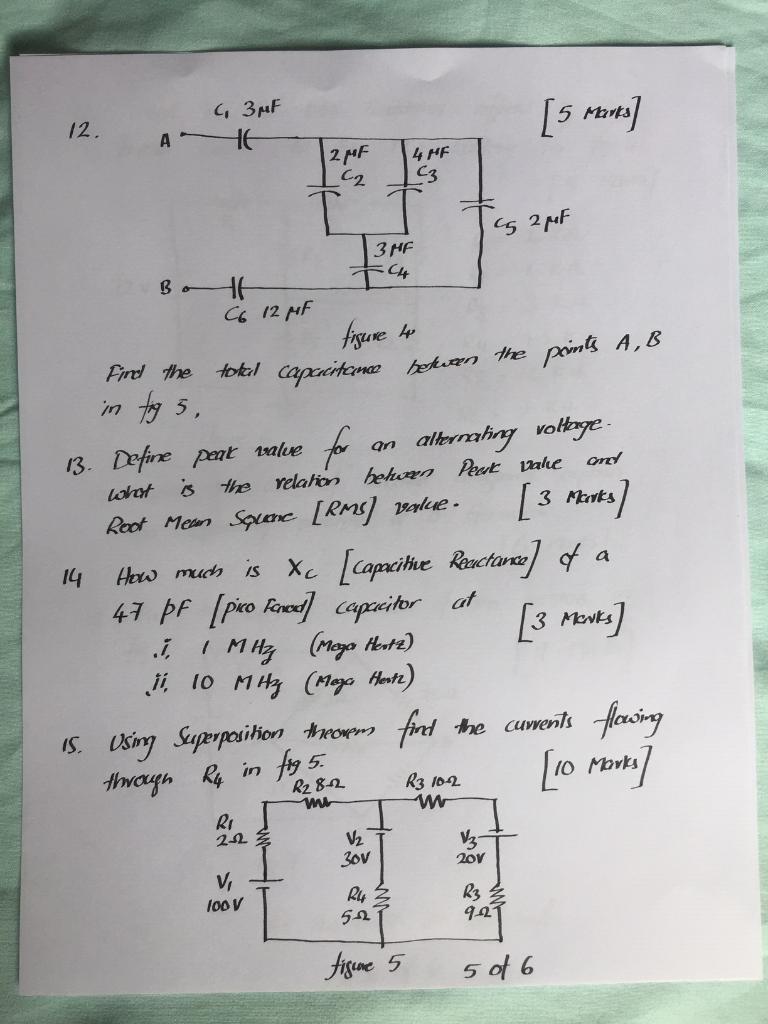 12.
[5 Marks]
C1 3μF
A
2μF
C2
4μF
C3
C5 2μF
3μF
C4
B
C6 12μF
figure 4
Find the total capacitance between the points A, B
in fig 5,
13. Define peak value for an alternating voltage.
what is the relation between Peak value and
Root Mean Square [RMS] value. [3 Marks]
14 How much is Xc [Capacitive Reactance] of a
47 pF [pico Farad] capacitor at [3 Marks]
i, 1 MHz (Mega Hertz)
ii, 10 MHz (Mega Hertz)
15. Using Superposition theorem find the currents flowing
through R4 in fig 5. [10 Marks]
R2 8Ω
R3 10Ω
R1
2Ω
V2
30V
V3
20V
V1
100V
R4
5Ω
R3
9Ω
figure 5
5 of 6